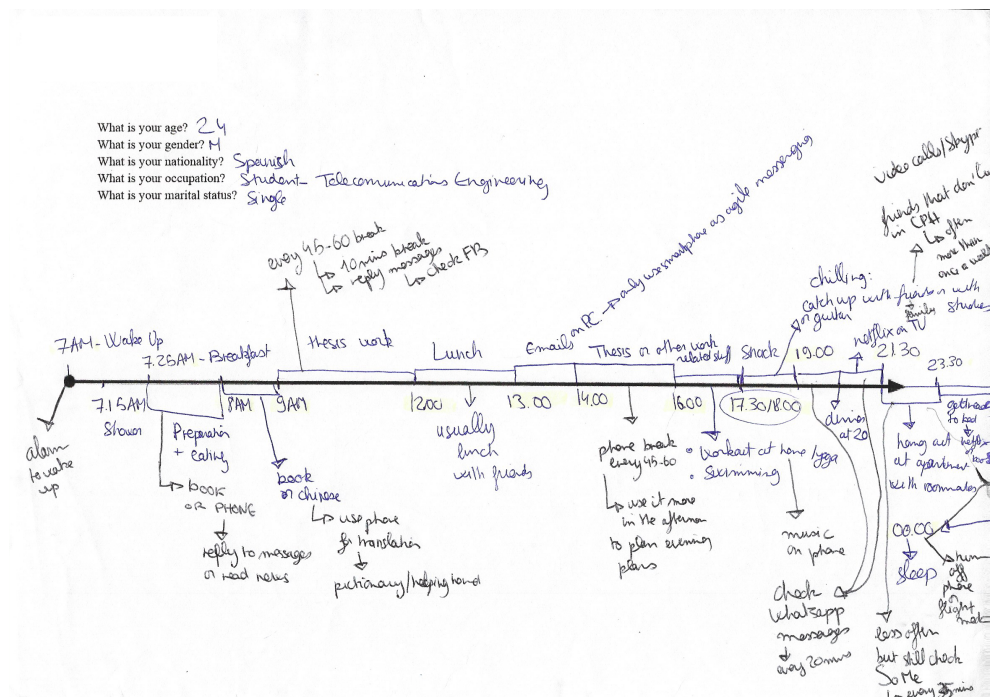 What is your age? 24
What is your gender? M
What is your nationality? Spanish
What is your occupation? Student - Telecommunications Engineering
What is your marital status? Single
every 45-60 break
↳ 10 mins break
↳ reply messages
↳ check FB
Emails on PC. → only use smartphone as agile messenging
video calls/Skype
friends that don't
in CPH
↳ often
more than
once a week
chilling:
catch up with friends or with
or guitar
family
studies
netflix on TV
7AM - Wake Up
7.25AM - Breakfast
thesis work
Lunch
Thesis or other work
related stuff
Snack
19.00
21.30
23.30
7.15AM
Shower
8AM
9AM
12.00
13.00
14.00
16.00
17.30/18.00
alarm
to wake
up
Preparation
+ eating
→ book
OR PHONE
reply to messages
or read news
book
or chinese
↳ use phone
for translation
pictionary/helping hand
usually
lunch
with friends
phone break
every 45-60
↳ use it more
in the afternoon
to plan evening
plans
• Workout at home/yoga
• Swimming
music
on phone
dinner
at 20
check
whatsapp
messages
every 20 mins
hang out
at apartment
with roommates
get ready
to bed
netflix
or book
00.00
sleep
→ turn
off
phone
or
flight
mode
less often
but still check
SoMe
every 35 mins